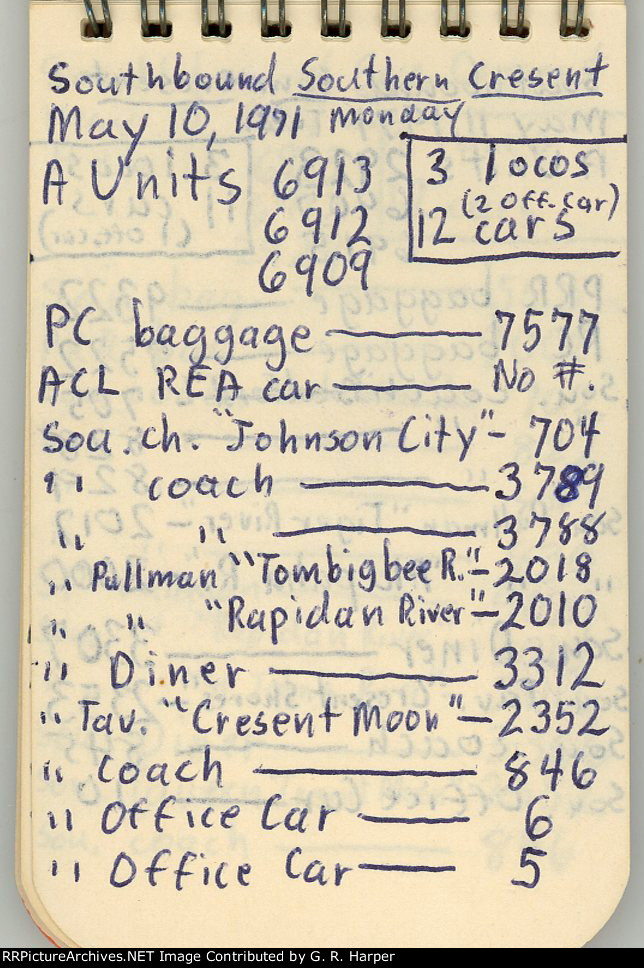 Southbound Southern Cresent
May 10, 1971 Monday
A Units 6913
6912
6909
3 locos
(2 Off. Car)
12 cars
PC baggage — 7577
ACL REA car — No #.
Sou. ch. "Johnson City" - 704
" coach — 3789
" " — 3788
" Pullman "Tombigbee R." - 2018
" " "Rapidan River" - 2010
" Diner — 3312
" Tav. "Cresent Moon" - 2352
" coach — 846
" Office Car — 6
" Office Car — 5
RRPictureArchives.NET Image Contributed by G. R. Harper